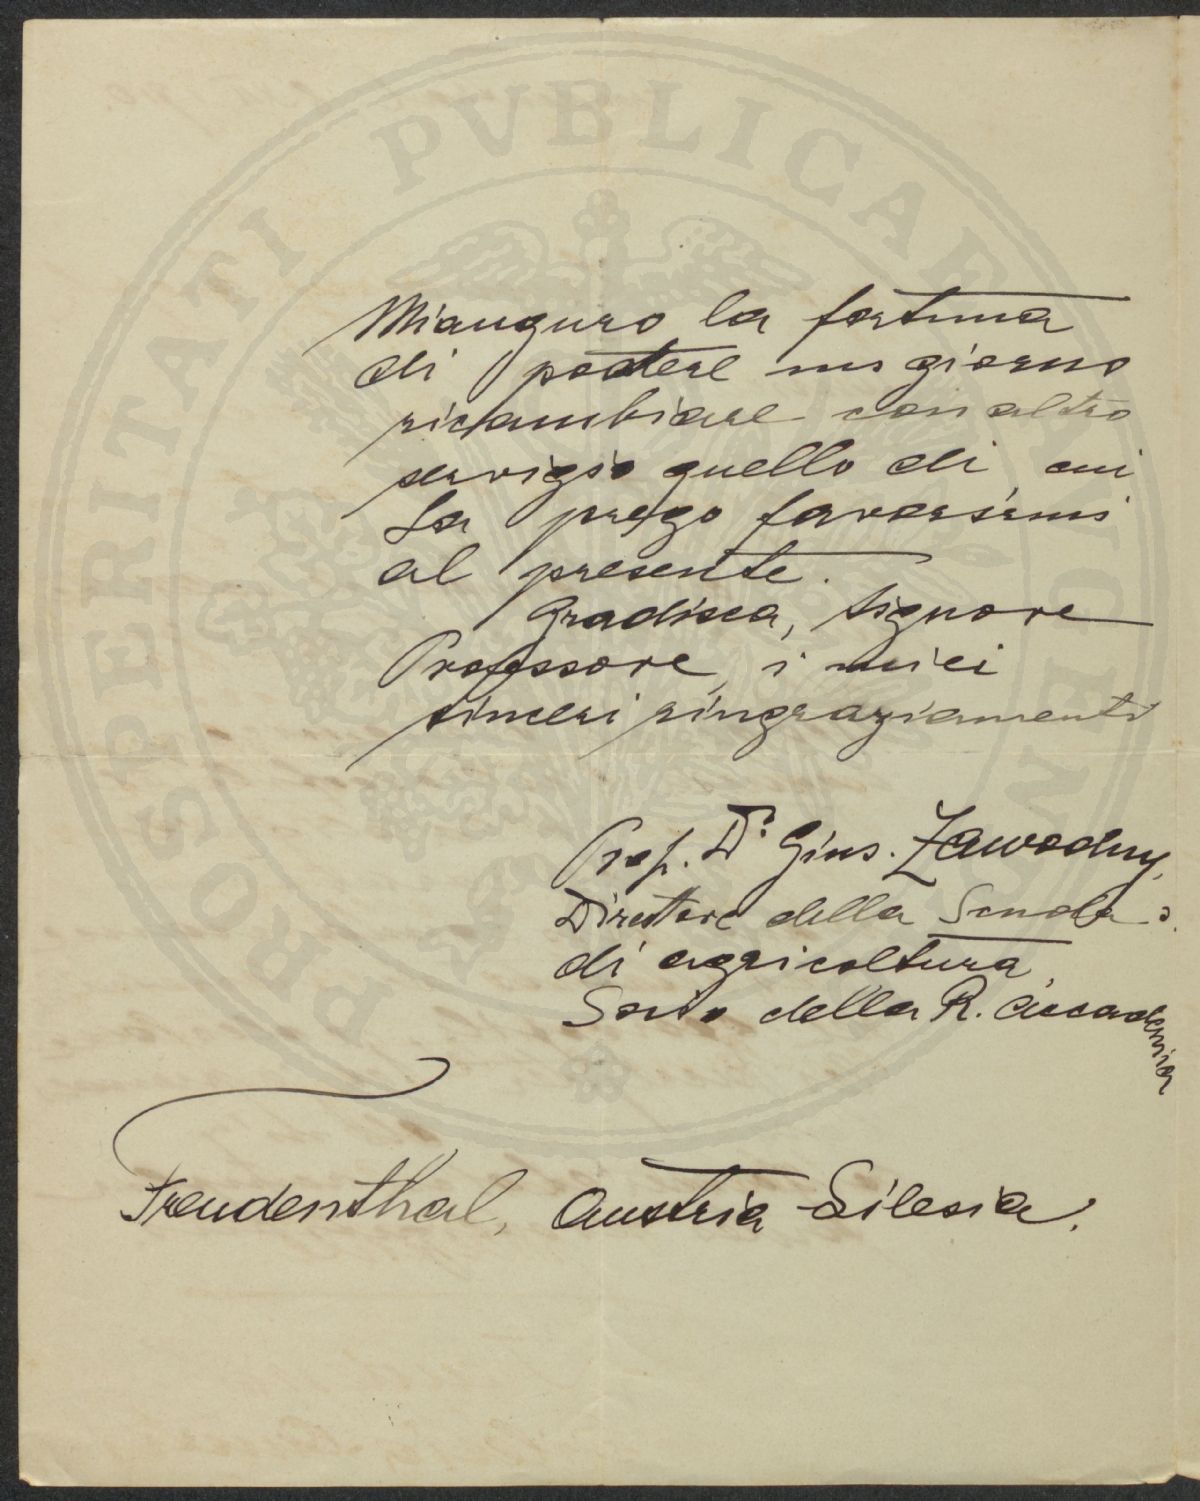 PROSPERITATI PVBLICAE
Miauguro la fortuna
di potere un giorno
ricambiare con altro
servigio quello di cui
La prego favorirmi
al presente.
Gradisca, Signore
Professore, i miei
sinceri ringraziamenti
Prof. Dr. Gius. Zawodny,
Direttore della Scuola
di agricoltura,
Socio della R. Accademia
Freudenthal, Austria-Silesia.